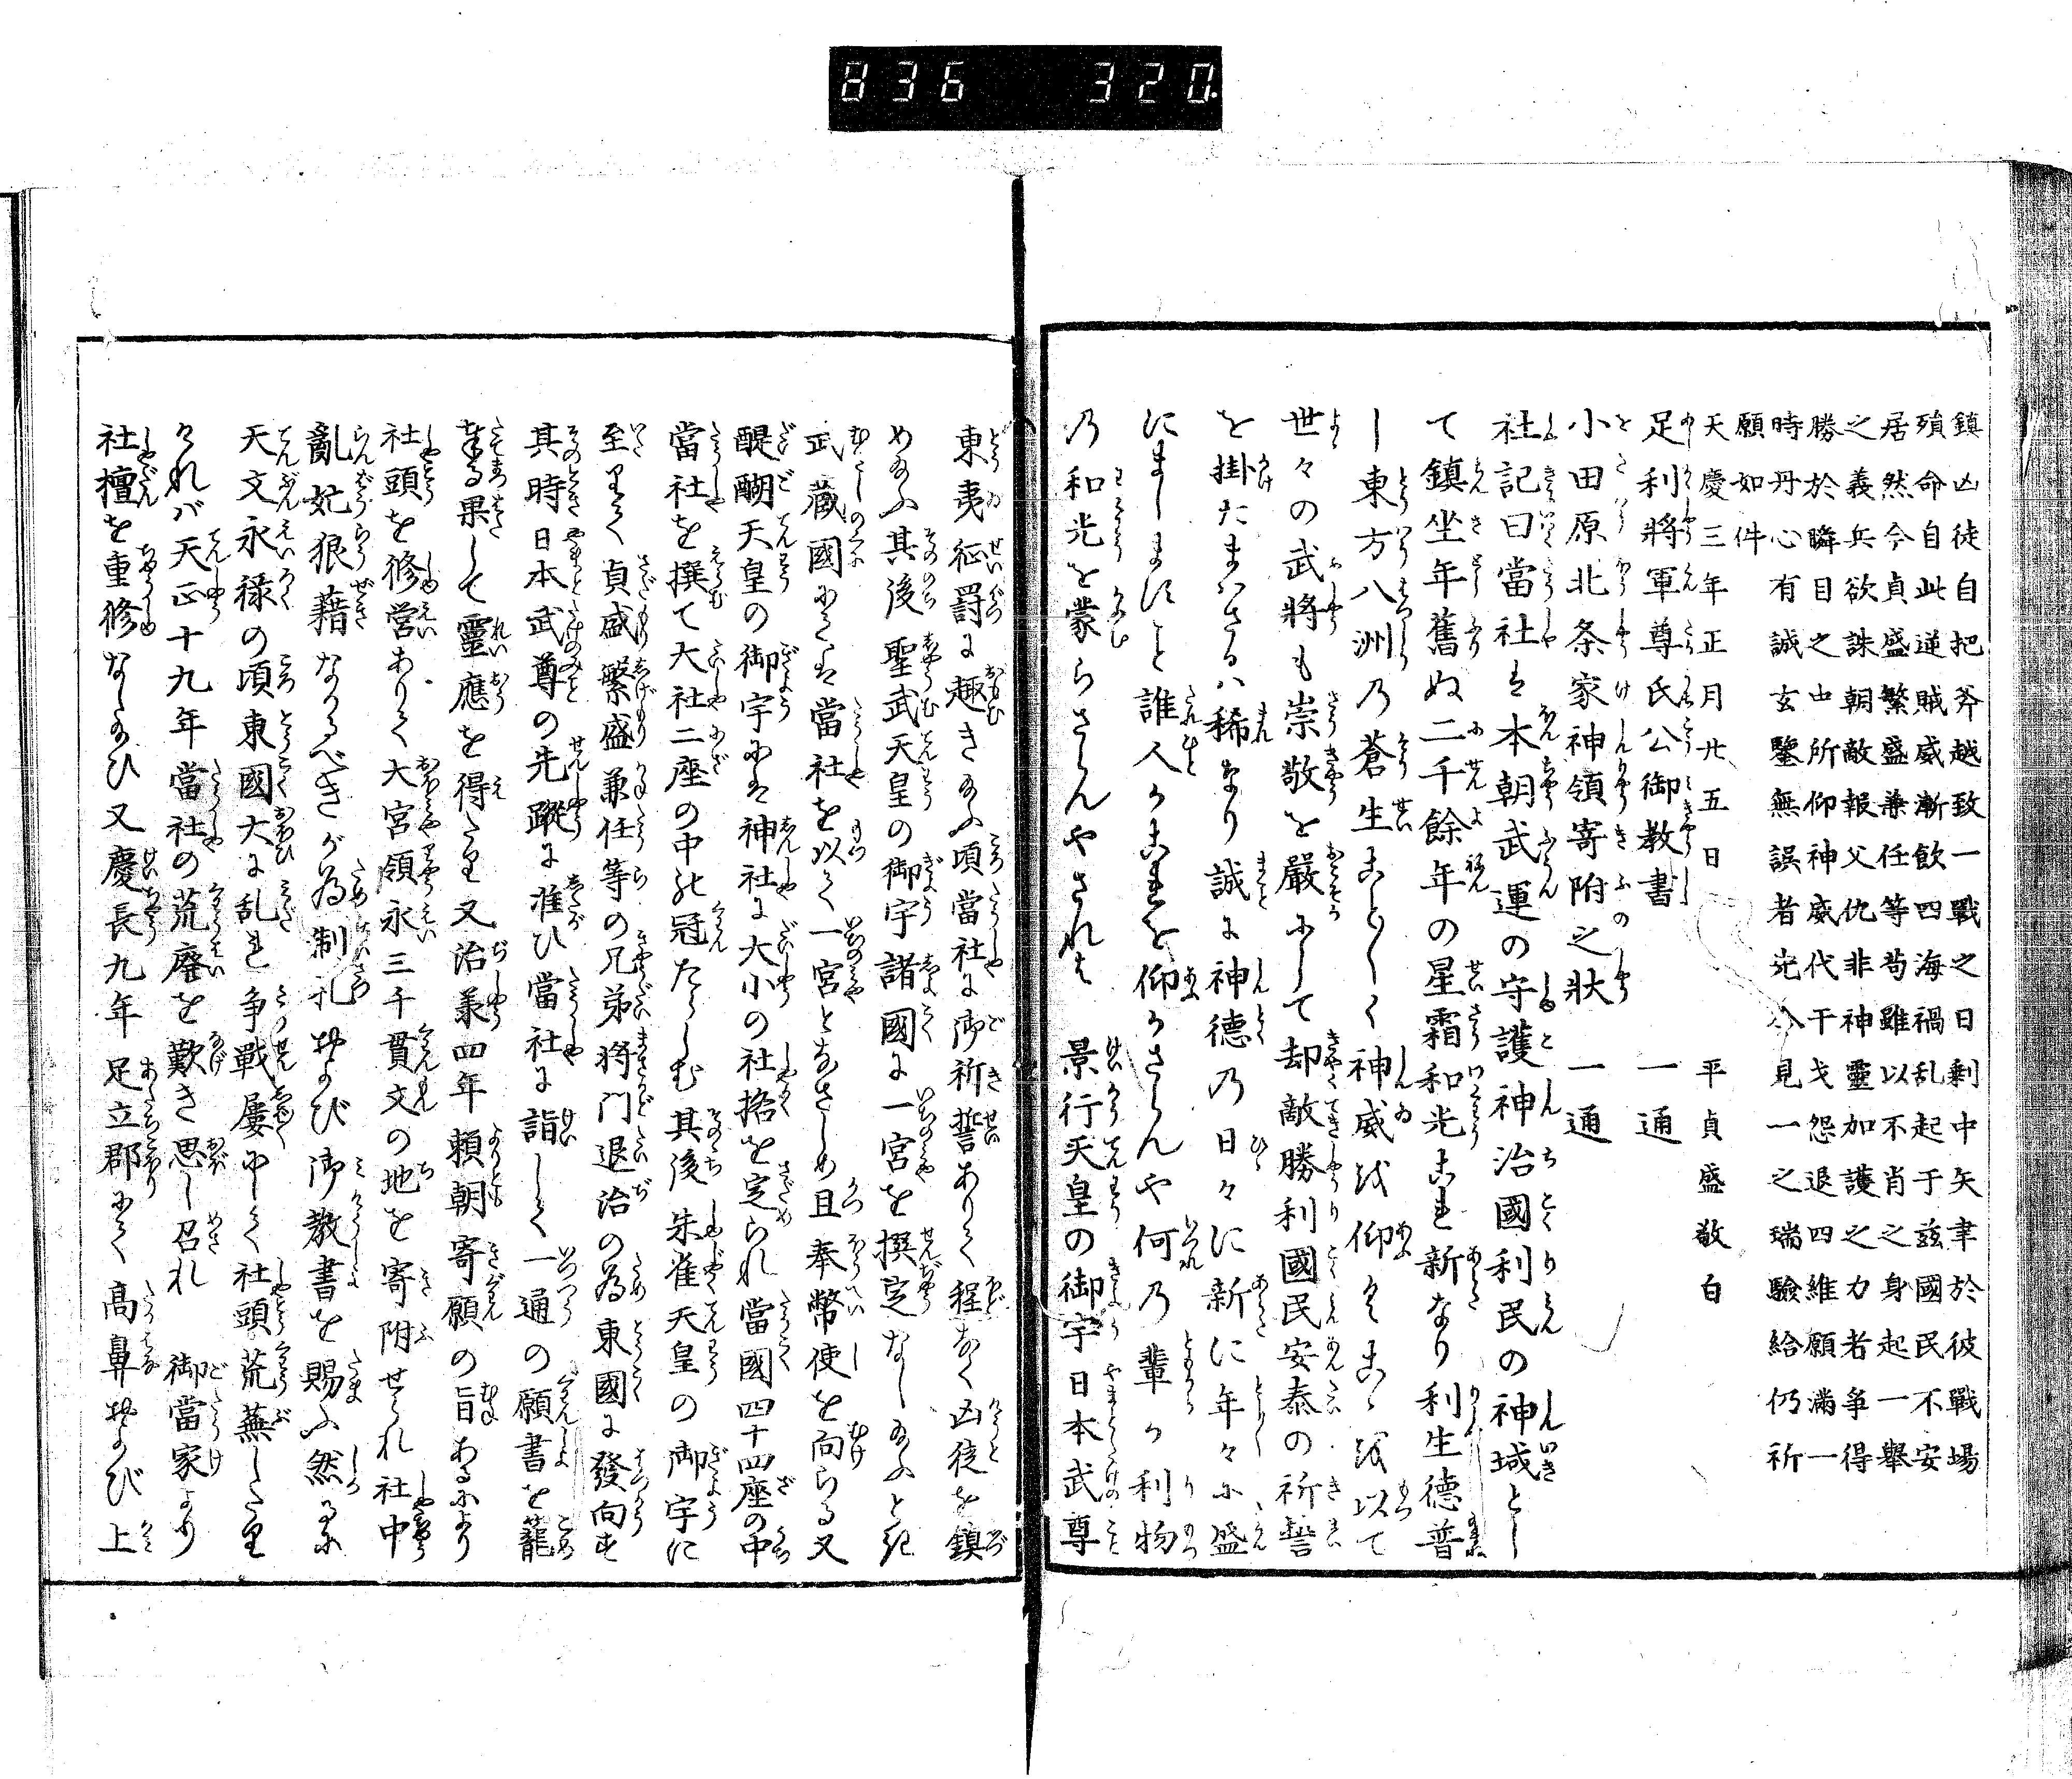 836 320
鎮凶徒自把斧越致一戰之日剰中矢聿於彼戰場
殞命自此逆賊威漸飲四海禍乱起于茲國民不安
居然今貞盛繁盛兼任等苟雖以不肖之身起一擧
之義兵欲誅朝敵報父仇非神靈加護之力者争得
勝於瞬目之中所仰神威代干戈怨退四維願滿一
時丹心有誠玄鑒無誤者光今見一之瑞驗給仍祈
願如件
天慶三年正月廿五日 平貞盛敬白
足利將軍尊氏公御教書 一通
小田原北条家神領寄附之狀 一通
社記曰當社は本朝武運の守護神治國利民の神域とし
て鎮坐年舊ぬ二千餘年の星霜和光これ新なり利生德普
し東方八洲乃蒼生ことごとく神威を仰てこゝを以て
世々の武將も崇敬を嚴にして却敵勝利國民安泰の祈誓
を掛たまはさるハ稀なり誠に神德乃日々に新に年々に盛
にましますこと誰人かこれを仰かさらんや何乃輩か利物
乃和光を蒙らさらんやされは 景行天皇の御宇日本武尊
東夷征罸に趣き給ふ頃當社に御祈誓ありて程なく凶徒を鎮
め給ふ其後聖武天皇の御宇諸國に一宮を撰定なし給ふと
武蔵國にては當社を以て一宮となさしめ且奉幣使を向らる又
醍醐天皇の御宇には神社に大小の社格を定られ當國四十四座の中
當社を撰て大社二座の中の冠たらしむ其後朱雀天皇の御宇に
至りて貞盛繁盛兼任等の兄弟將門退治の為東國に發向す
其時日本武尊の先蹤に准ひ當社に詣して一通の願書を籠
奉る果して靈應を得たり又治承四年頼朝寄願の旨あるにより
社頭を修営ありて大宮領永三千貫文の地を寄附せられ社中
亂妨狼藉なかるべきが為制札および御教書を賜ふ然るに
天文永禄の頃東國大に乱れ争戰屢にして社頭荒蕪したり
されバ天正十九年當社の荒廢を歎き思し召れ 御當家より
社檀を重修なし給ひ又慶長九年足立郡にて高鼻および上